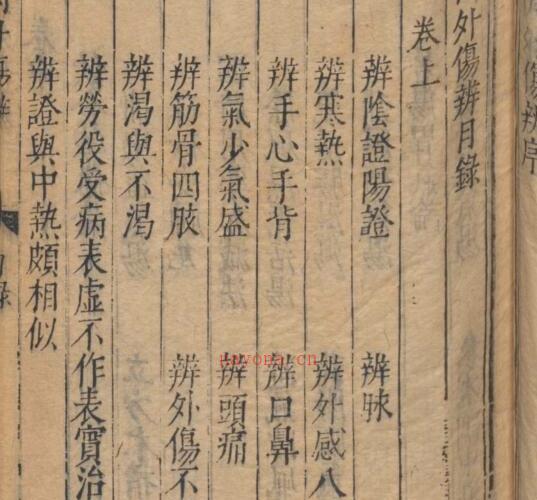 外傷辨目錄
卷上
辨陰證陽證 辨脉
辨寒熱 辨外感八
辨手心手背 辨口鼻
辨氣少氣盛 辨頭痛
辨筋骨四肢 辨外傷不
辨渴與不渴
辨勞役受病表虛不作表實治
辨證與中熱頗相似
nayopa.cn